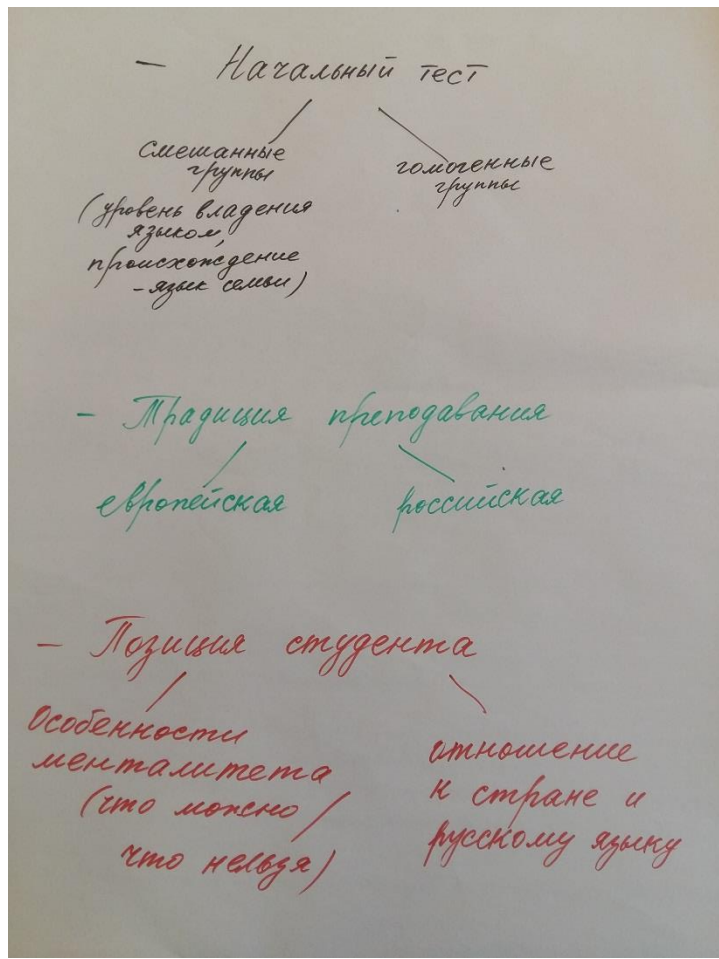 - Начальный тест
смешанные
группы
гомогенные
группы
(уровень владения
языком,
происхождение
- язык семьи)
- Традиция преподавания
европейская
российская
- Позиция студента
Особенности
менталитета
(что можно /
что нельзя)
отношение
к стране и
русскому языку